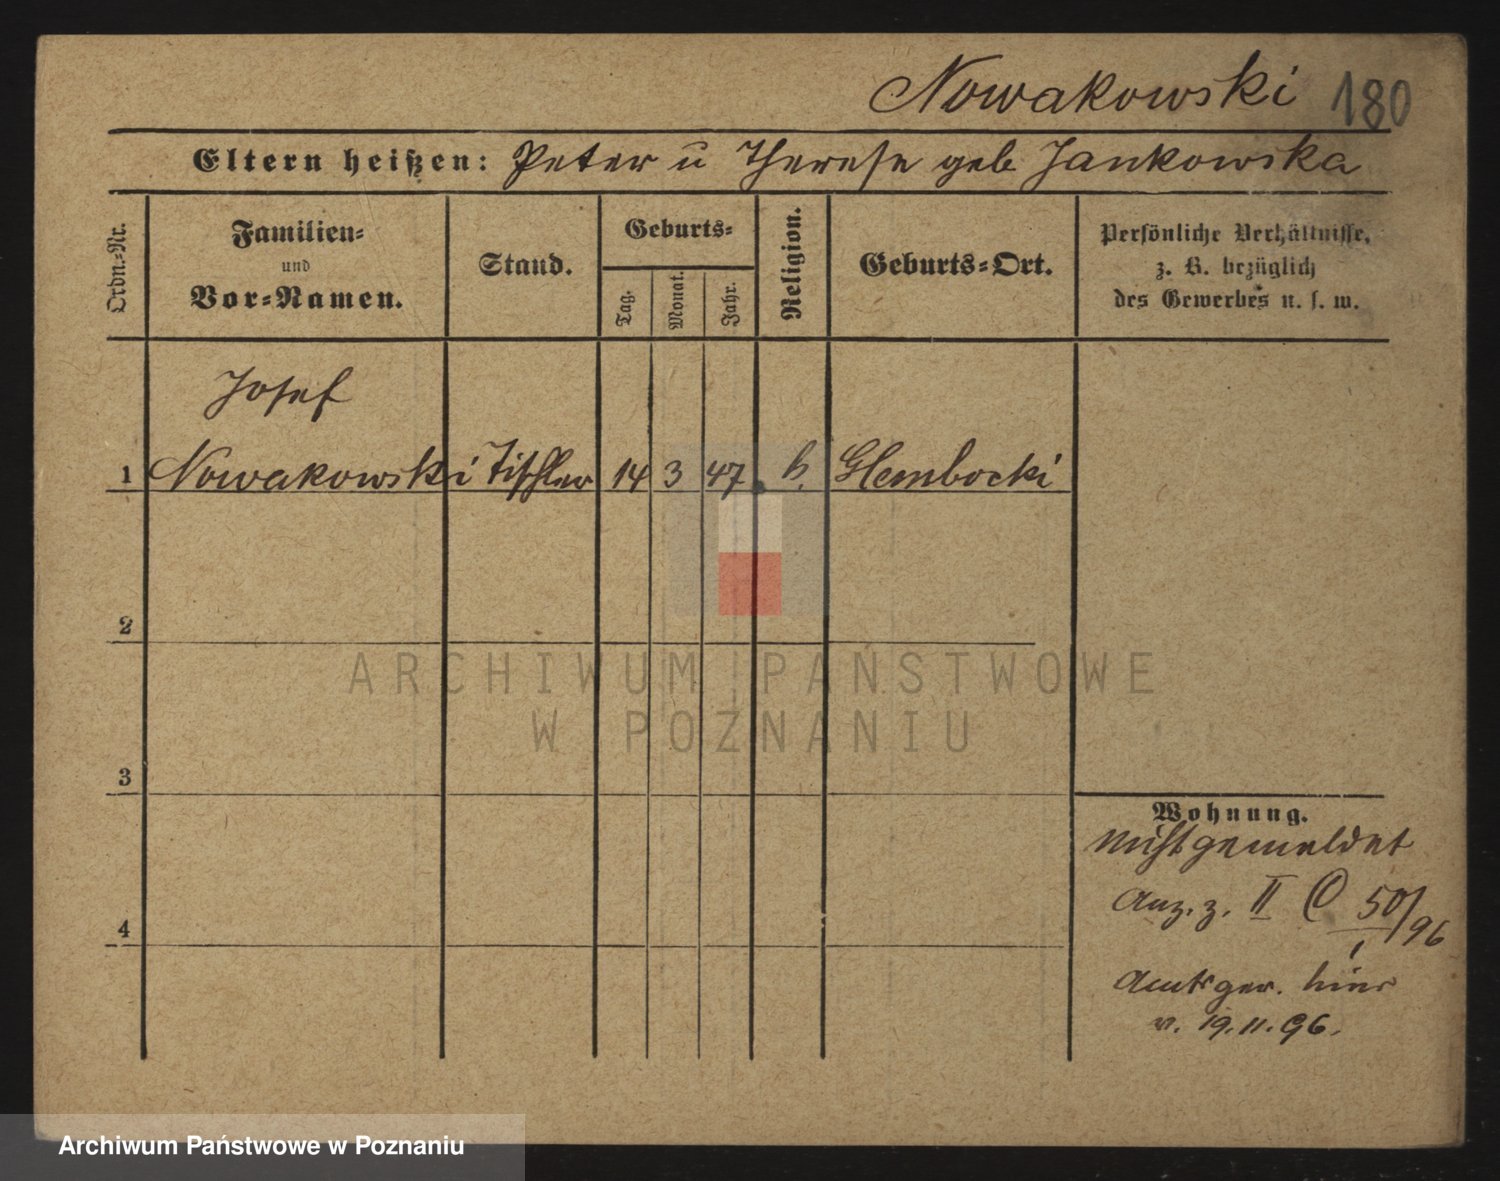 Nowakowski 180
Eltern heißen: Peter u Therese geb Jankowska
Ordn.-Nr.
Familien-
und
Vor-Namen.
Stand.
Geburts-
Tag.
Monat.
Jahr.
Religion.
Geburts-Ort.
Persönliche Verhältnisse,
z. B. bezüglich
des Gewerbes u. s. w.
Josef
1 Nowakowski Tischler 14 3 47 k. Glembocki
2
3
4
Wohnung.
nicht gemeldet
Anz. z. II C 50/96
1
Amtsger. hier
v. 19.11.96.
ARCHIWUM PAŃSTWOWE
W POZNANIU
Archiwum Państwowe w Poznaniu